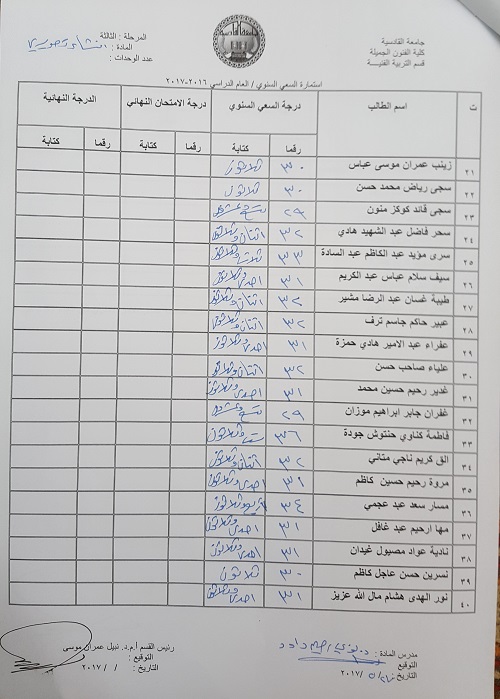 جامعة القادسية
كلية الفنون الجميلة
قسم التربية الفنية
المرحلة : الثالثة
المادة : انشاء تصويري
عدد الوحدات :
استمارة السعي السنوي / العام الدراسي ٢٠١٦-٢٠١٧
ت اسم الطالب درجة السعي السنوي درجة الامتحان النهائي الدرجة النهائية
رقما كتابة رقما كتابة رقما كتابة
٢١ زينب عمران موسى عباس ٣٠ ثلاثون
٢٢ سجى رياض محمد حسن ٣٠ ثلاثون
٢٣ سجى قائد كوكز منون ٢٩ تسع وعشرون
٢٤ سحر فاضل عبد الشهيد هادي ٣٢ اثنان وثلاثون
٢٥ سرى مؤيد عبد الكاظم عبد السادة ٣٣ ثلاث وثلاثون
٢٦ سيف سلام عباس عبد الكريم ٣١ احدى وثلاثون
٢٧ طيبة غسان عبد الرضا مشير ٣٢ اثنان وثلاثون
٢٨ عبير حاكم جاسم ترف ٣٢ اثنان وثلاثون
٢٩ عفراء عبد الامير هادي حمزة ٣١ احدى وثلاثون
٣٠ علياء صاحب حسن ٣٢ اثنان وثلاثون
٣١ غدير رحيم حسين محمد ٣١ احدى وثلاثون
٣٢ غفران جابر ابراهيم موزان ٢٩ تسع وعشرون
٣٣ فاطمة كناوي حنتوش جودة ٣٦ ست وثلاثون
٣٤ الق كريم ناجي متاني ٣٢ اثنان وثلاثون
٣٥ مروة رحيم حسين كاظم ٣١ احدى وثلاثون
٣٦ مسار سعد عبد عجمي ٣٤ اربع وثلاثون
٣٧ مها ارحيم عبد غافل ٣١ احدى وثلاثون
٣٨ نادية عواد مصبول غيدان ٣١ احدى وثلاثون
٣٩ نسرين حسن عاجل كاظم ٣٠ ثلاثون
٤٠ نور الهدى هشام مال الله عزيز ٣١ احدى وثلاثون
مدرس المادة :
التوقيع :
التاريخ : / ٢٠١٧
رئيس القسم أ.م.د. نبيل عمران موسى
التوقيع :
التاريخ : / / ٢٠١٧